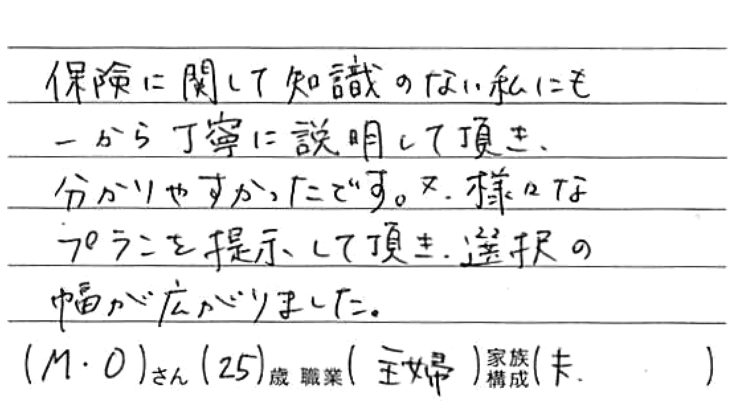 保険に関して知識のない私にも
一から丁寧に説明して頂き、
分かりやすかったです。又、様々な
プランを提示して頂き、選択の
幅が広がりました。
(M・O)さん(25)歳 職業(主婦)家族構成(夫、)